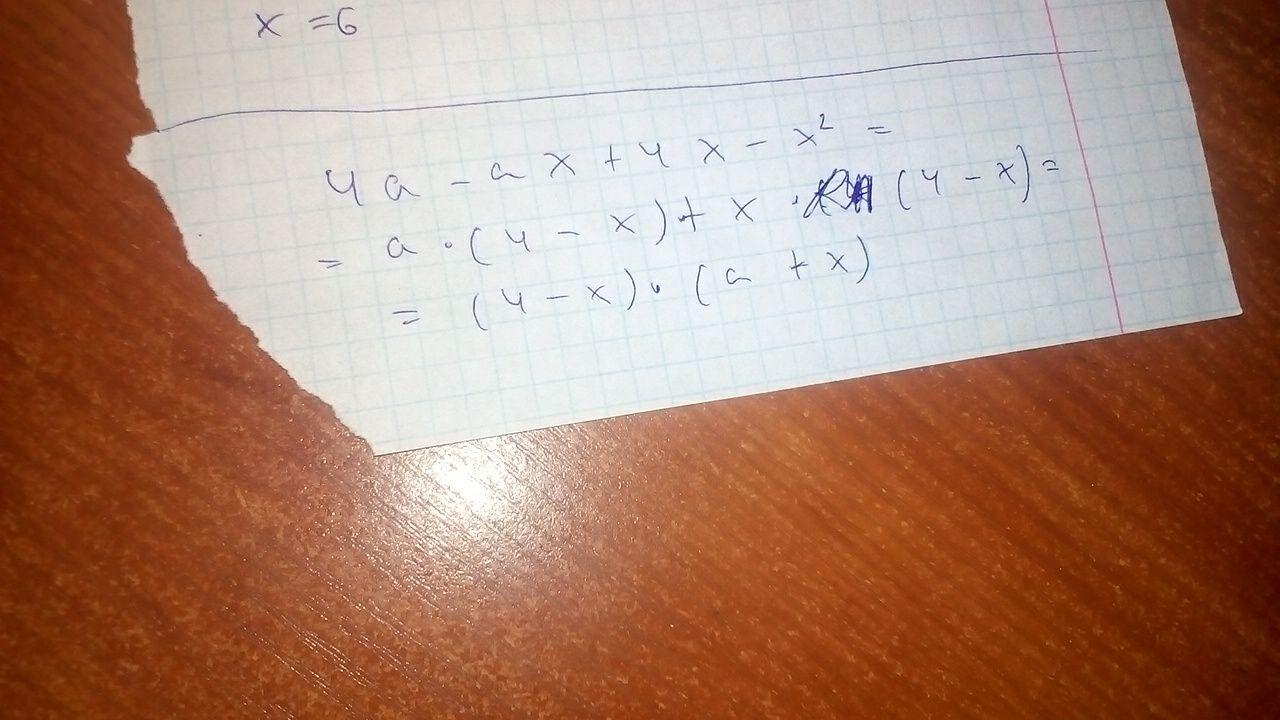 x = 6
4a - ax + 4x - x² =
= a · (4 - x) + x · (4 - x) =
= (4 - x) · (a + x)